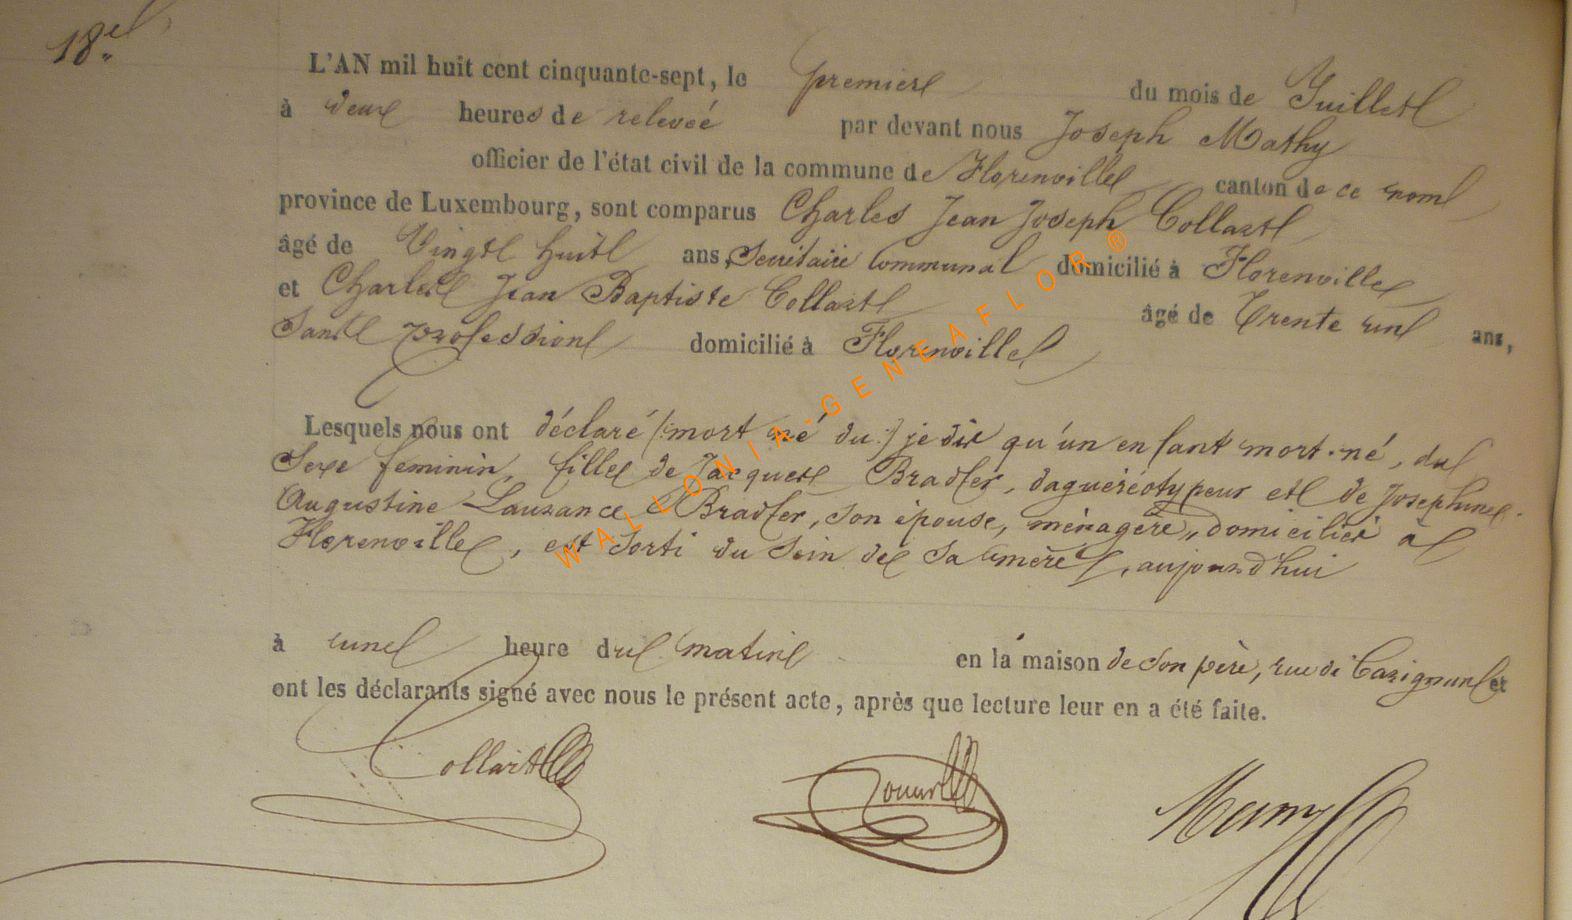 18.e
L'AN mil huit cent cinquante-sept, le premier du mois de Juillet
à deux heures de relevée par devant nous Joseph Mathy
officier de l'état civil de la commune de Florenville canton de ce nom
province de Luxembourg, sont comparus Charles Jean Joseph Collart
âgé de Vingt huit ans, Secrétaire Communal domicilié à Florenville
et Charles Jean Baptiste Collart âgé de Trente un ans,
Sans profession domicilié à Florenville
Lesquels nous ont déclaré (mort né du) je dis qu'un enfant mort-né, du
Sexe feminin fille de Jacques Bradfer, daguéréotypeur et de Josephine
Augustine Lausance Bradfer, son épouse, ménagère, domiciliés à
Florenville, est sorti du Sein de Sa mère, aujourd'hui
à une heure du matin en la maison de Son père, rue de Carignan et
ont les déclarants signé avec nous le présent acte, après que lecture leur en a été faite.
Collart
WALLONIA-GENEAFLOR ®